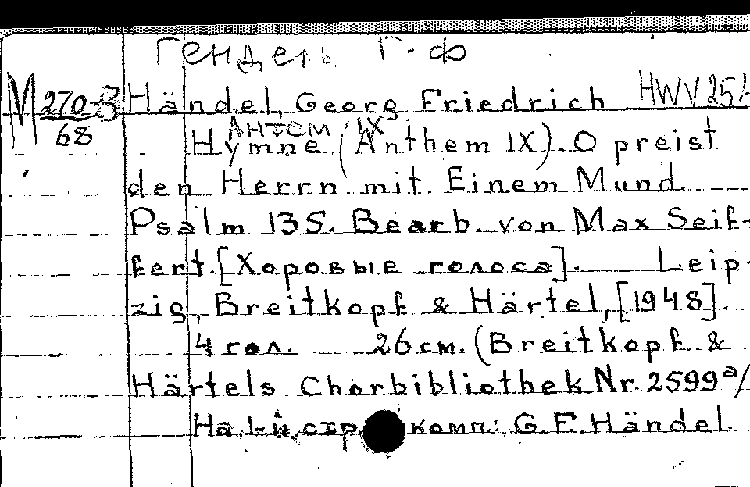 Гендель Г. Ф
M 270-3/68
Händel, Georg Friedrich HWV 25
Антем IX
Hymne (Anthem IX). O preist
den Herrn mit Einem Mund
Psalm 135. Bearb. von Max Seif-
fert. [Хоровые голоса]. Leip-
zig, Breitkopf & Härtel, [1948].
4 гол. 26 см. (Breitkopf &
Härtels Chorbibliothek Nr. 2599 a/
На 1-й стр. комп.: G. F. Händel.